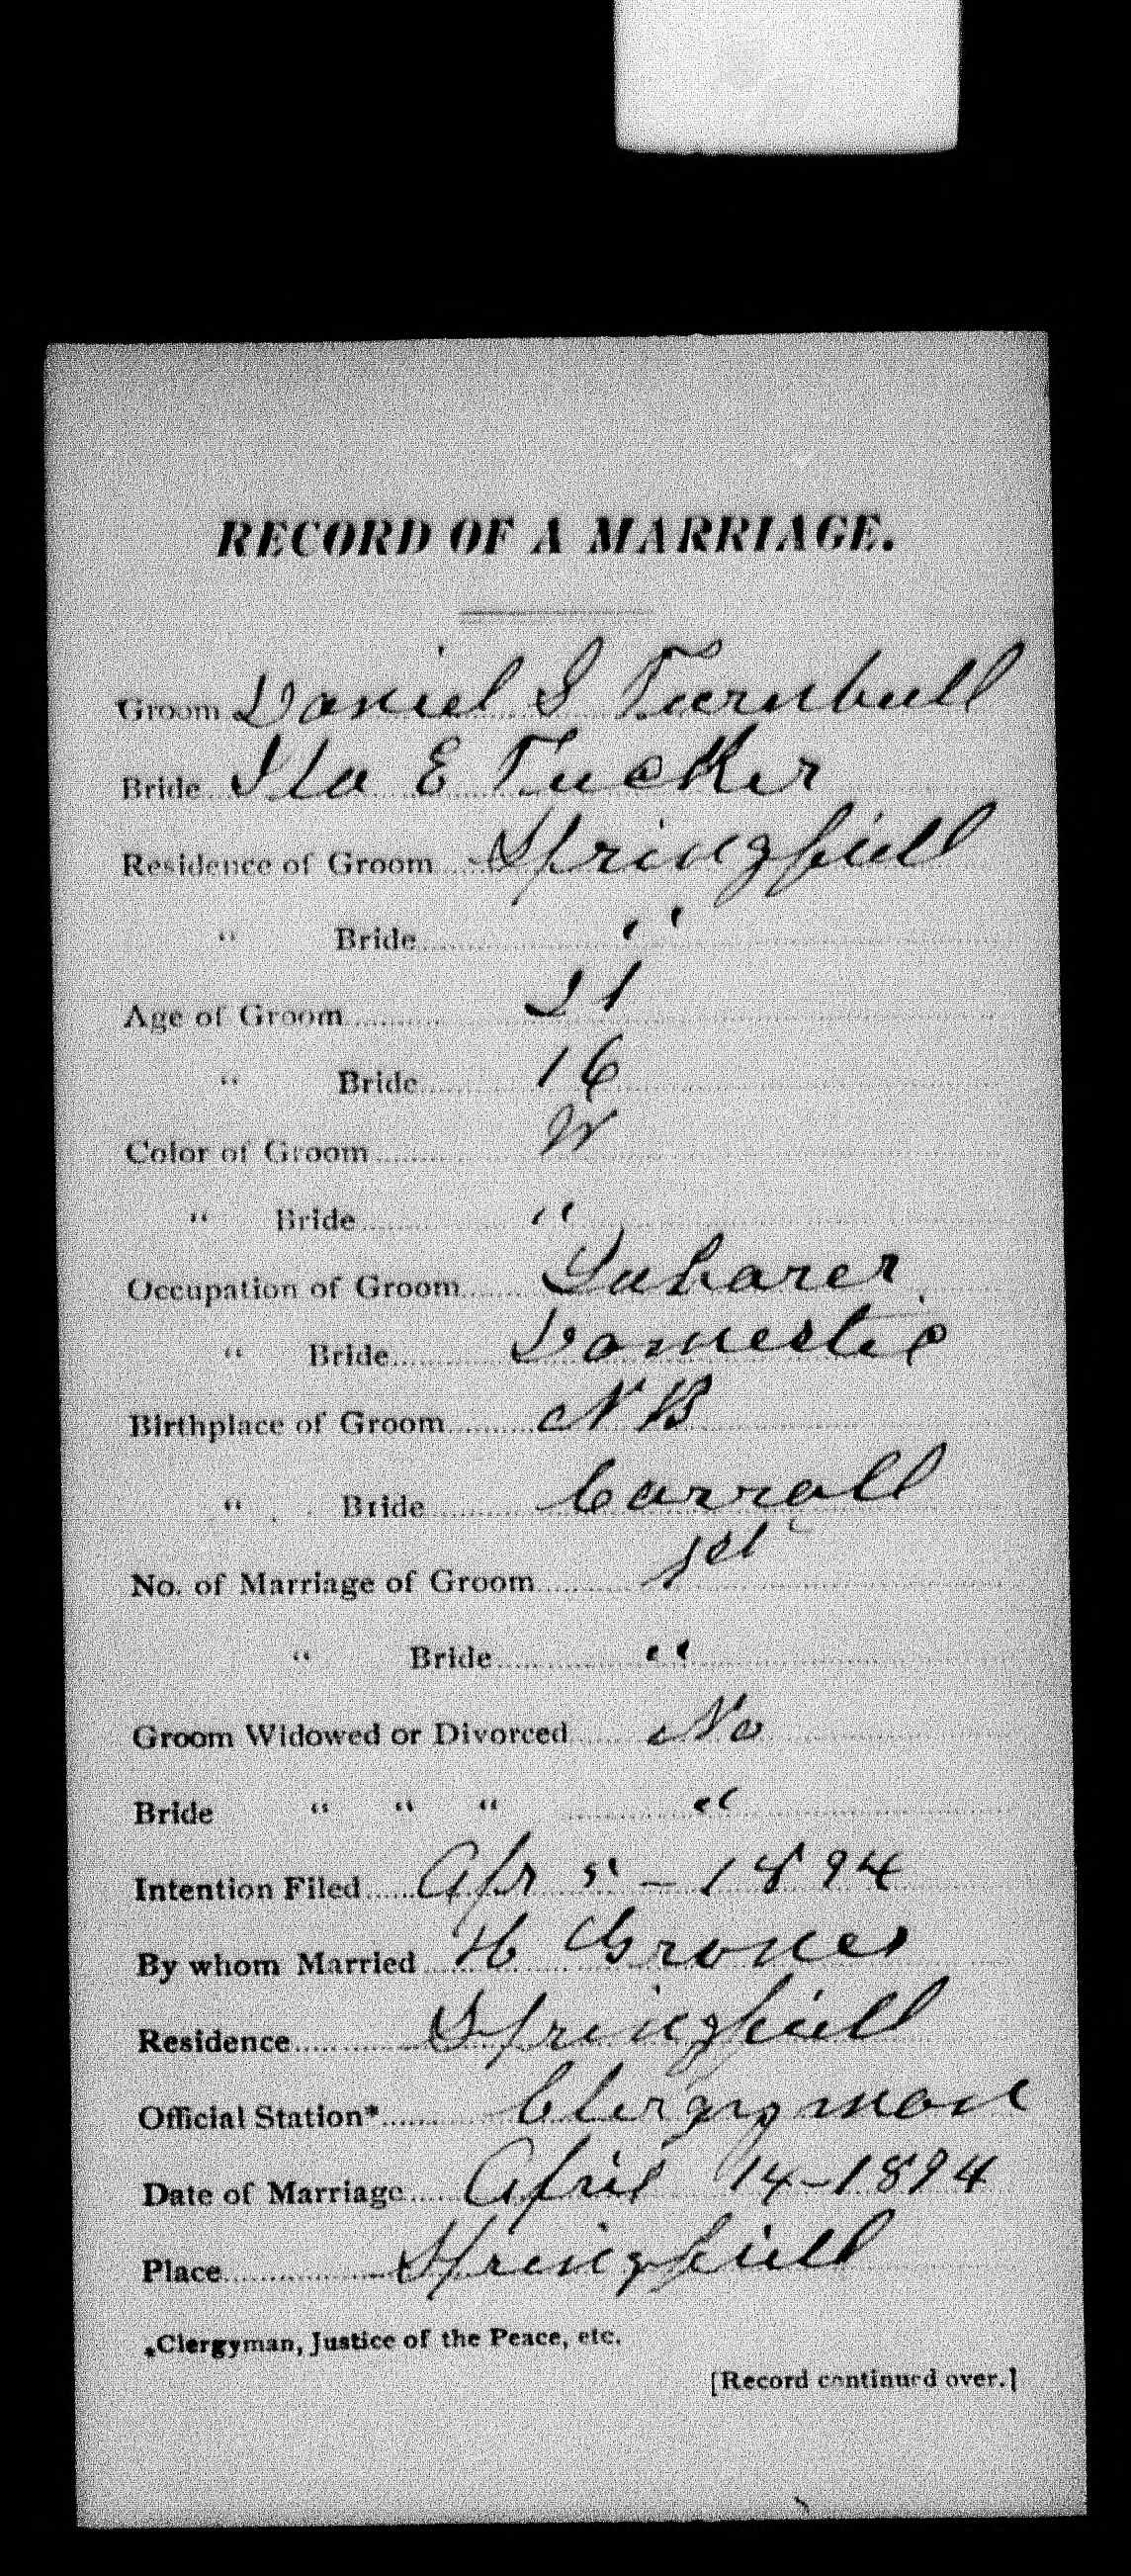 RECORD OF A MARRIAGE.
Groom Daniel S Turnbull
Bride Ila E Tucker
Residence of Groom Springfield
" Bride "
Age of Groom 21
" Bride 16
Color of Groom W
" Bride "
Occupation of Groom Laborer
" Bride Domestic
Birthplace of Groom N B
" Bride Carroll
No. of Marriage of Groom 1st
" Bride "
Groom Widowed or Divorced No
Bride " " " "
Intention Filed Apr 5 - 1894
By whom Married H
Residence Springfield
Official Station* Clergyman
Date of Marriage April 14 - 1894
Place Springfield
*Clergyman, Justice of the Peace, etc.
[Record continued over.]